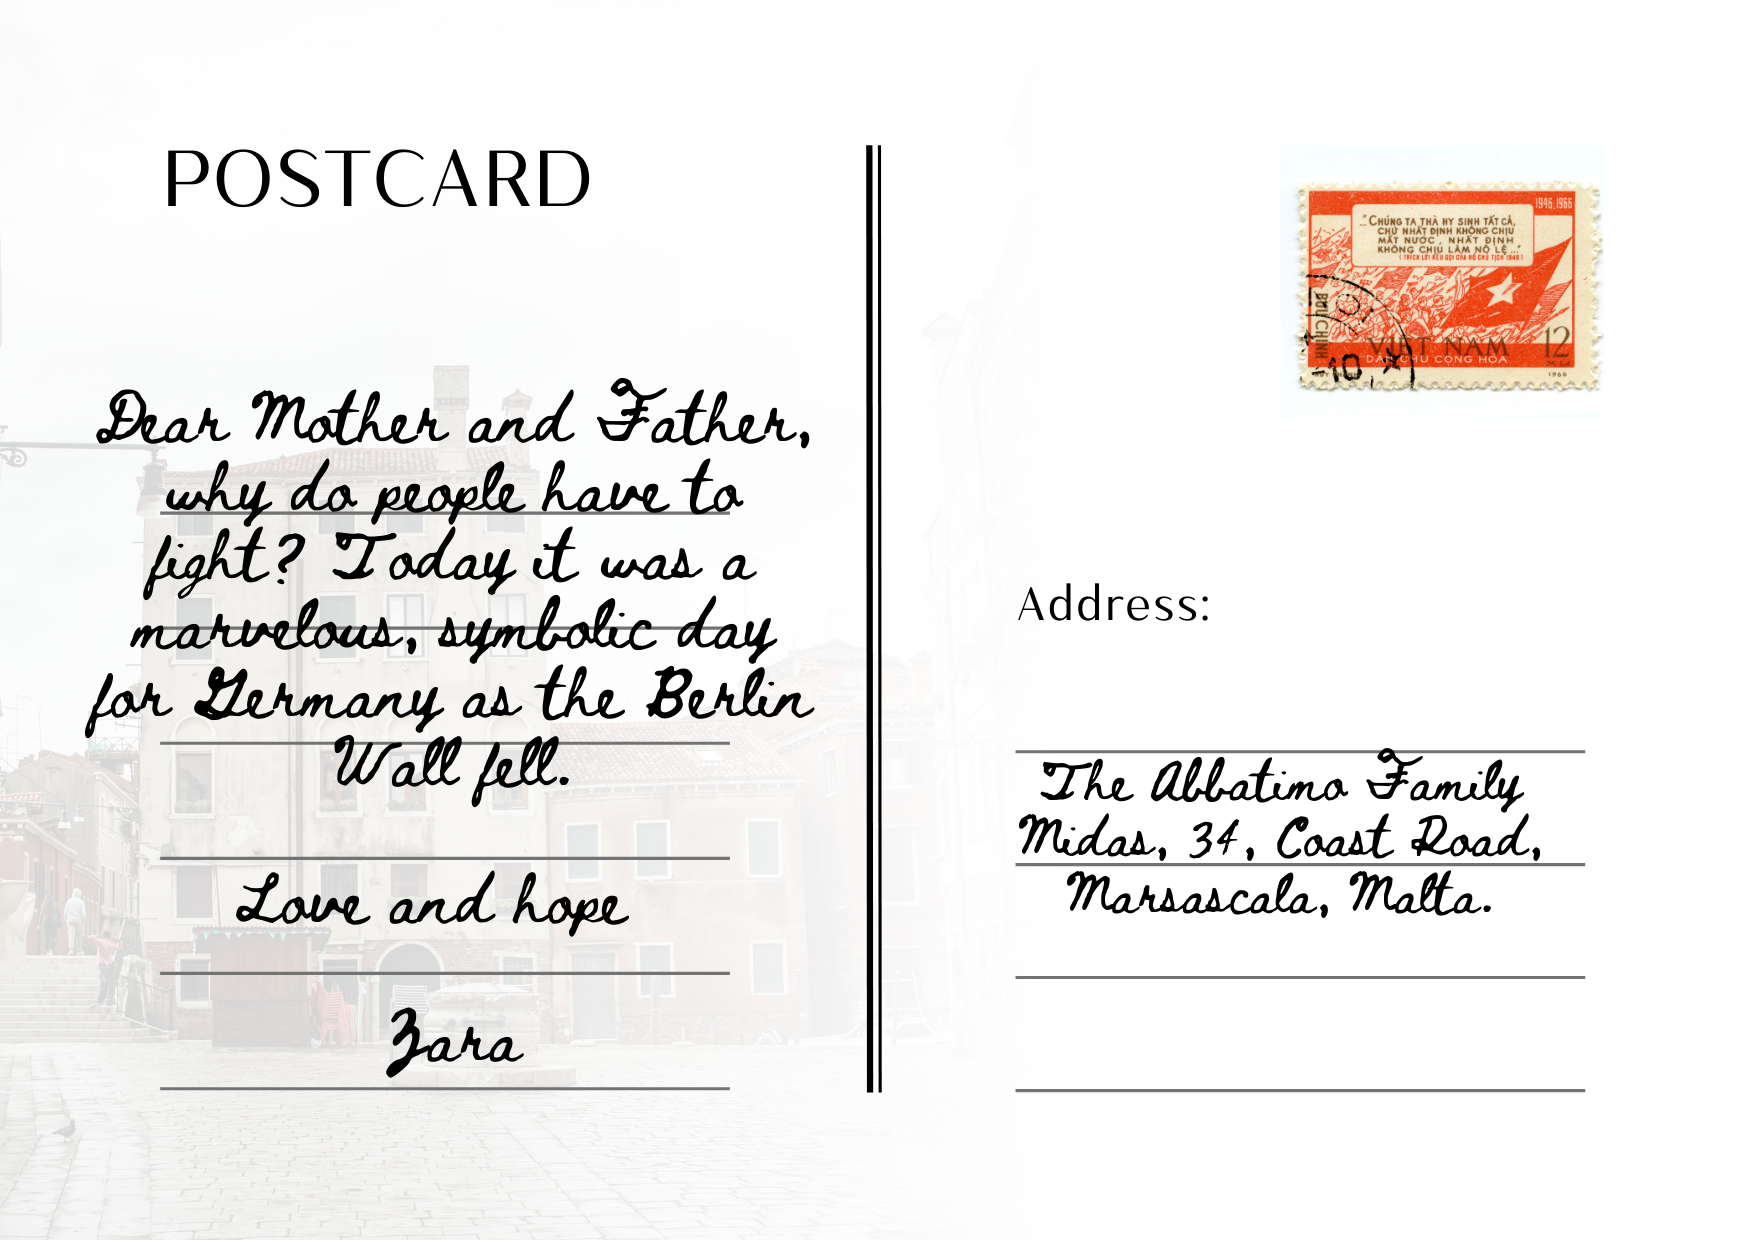 POSTCARD
Dear Mother and Father,
why do people have to
fight? Today it was a
marvelous, symbolic day
for Germany as the Berlin
Wall fell.
Love and hope
Zara
1946.1966
..."CHÚNG TA THÀ HY SINH TẤT CẢ,
CHỨ NHẤT ĐỊNH KHÔNG CHỊU
MẤT NƯỚC, NHẤT ĐỊNH
KHÔNG CHỊU LÀM NÔ LỆ..."
(TRÍCH LỜI KÊU GỌI CỦA HỒ CHỦ TỊCH 1946)
BƯU CHÍNH
VIỆT NAM
DÂN CHỦ CỘNG HÒA
12
XU
10
1966
Address:
The Abbatimo Family
Midas, 34, Coast Road,
Marsascala, Malta.